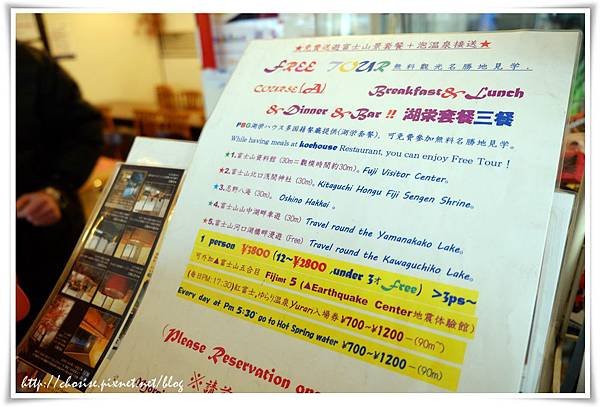 ★免費送遊富士山景套餐＋泡溫泉接送★
FREE TOUR 無料觀光名勝地見学．
COURSE(A) Breakfast & Lunch
& Dinner & Bar !! 湖栄套餐三餐
PBG湖栄ハウス多国籍餐廳提供(湖栄套餐)，可免費參加無料名勝地見学。
While having meals at koehouse Restaurant, you can enjoy Free Tour！
★1.富士山資料館 (30m＝觀模時間約30m)。Fuji Visitor Center。
★2.富士山北口浅間神社 (30m)。Kitaguchi Hongu Fiji Sengen Shrine。
★3.忍野八海 (30m)。 Oshino Hakkai 。
★4.富士山山中湖畔車遊 (30m) Travel round the Yamanakako Lake。
★5.富士山河口湖橋畔漫遊 (Free) Travel round the Kawaguchiko Lake。
1 person ¥3800 (12~¥2800 ,under 3才 free) >3ps~
可外加▲富士山五合目 Fijimt 5 (▲Earthquake Center地震体驗館)
(每日PM:17:30)紅富士,ゆらり温泉Yurari入場券 ¥700~¥1200－(90m~)
Every day at Pm 5:30 go to Hot Spring water ¥700~¥1200－(90m~)
(Please Reservation one
※請
http://chosise.pixnet.net/blog